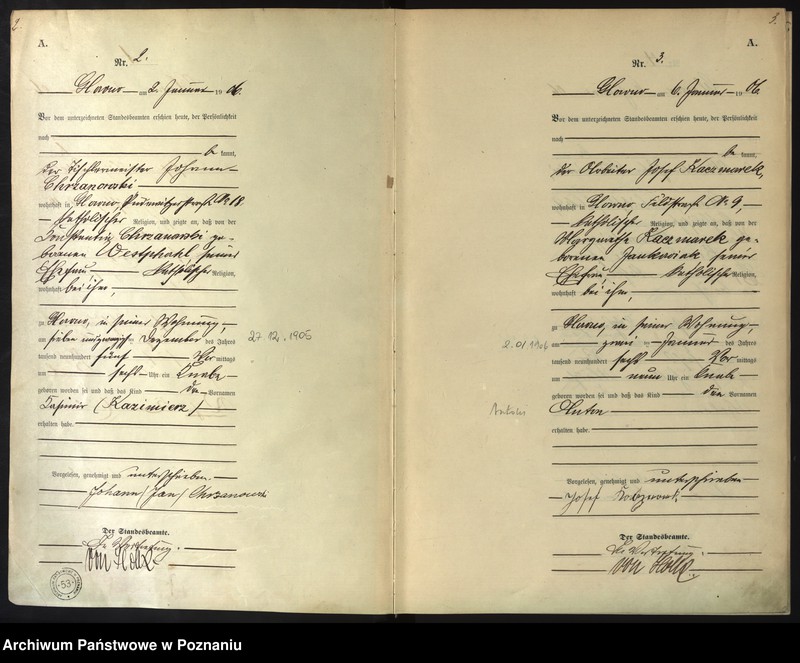 2.
A.
Nr. 2.
am 2. Januar 19 06.
Vor dem unterzeichneten Standesbeamten erschien heute, der Persönlichkeit
nach
be kannt,
der Tischlermeister Johann
Chrzanowski
wohnhaft in Nr. 18
katholischer Religion, und zeigte an, daß von der
Konstantia Chrzanowski ge-
borenen Westphahl seiner
Ehefrau katholischer Religion,
wohnhaft bei ihm,
zu in seiner Wohnung,
am sieben und zwanzigsten Dezember des Jahres
tausend neunhundert fünf Vor mittags
um sechs Uhr ein Knabe
geboren worden sei und daß das Kind den Vornamen
Casimir (Kazimierz)
erhalten habe.
27.12.1905
Vorgelesen, genehmigt und unterschrieben.
Johann (Jan) Chrzanowski
Der Standesbeamte.
In Vertretung.
53
3.
A.
Nr. 3.
am 6. Januar 19 06.
Vor dem unterzeichneten Standesbeamten erschien heute, der Persönlichkeit
nach
be kannt,
der Arbeiter Josef Kaczmarek,
wohnhaft in Nr. 9,
katholischer Religion, und zeigte an, daß von der
Margarethe Kaczmarek ge-
borenen Jankowiak seiner
Ehefrau katholischer Religion,
wohnhaft bei ihm,
zu in seiner Wohnung
am zwei ten Januar des Jahres
tausend neunhundert sechs Vor mittags
um neun Uhr ein Knabe
geboren worden sei und daß das Kind den Vornamen
Anton
erhalten habe.
2.01.1906
Vorgelesen, genehmigt und unterschrieben
Josef
Der Standesbeamte.
In Vertretung.
Archiwum Państwowe w Poznaniu